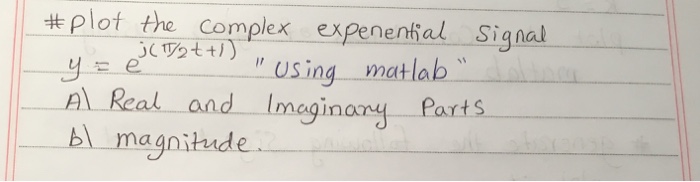 #plot the complex expenential signal
y = e^j(π/2t+1) "using matlab"
A\ Real and Imaginary Parts
b\ magnitude.